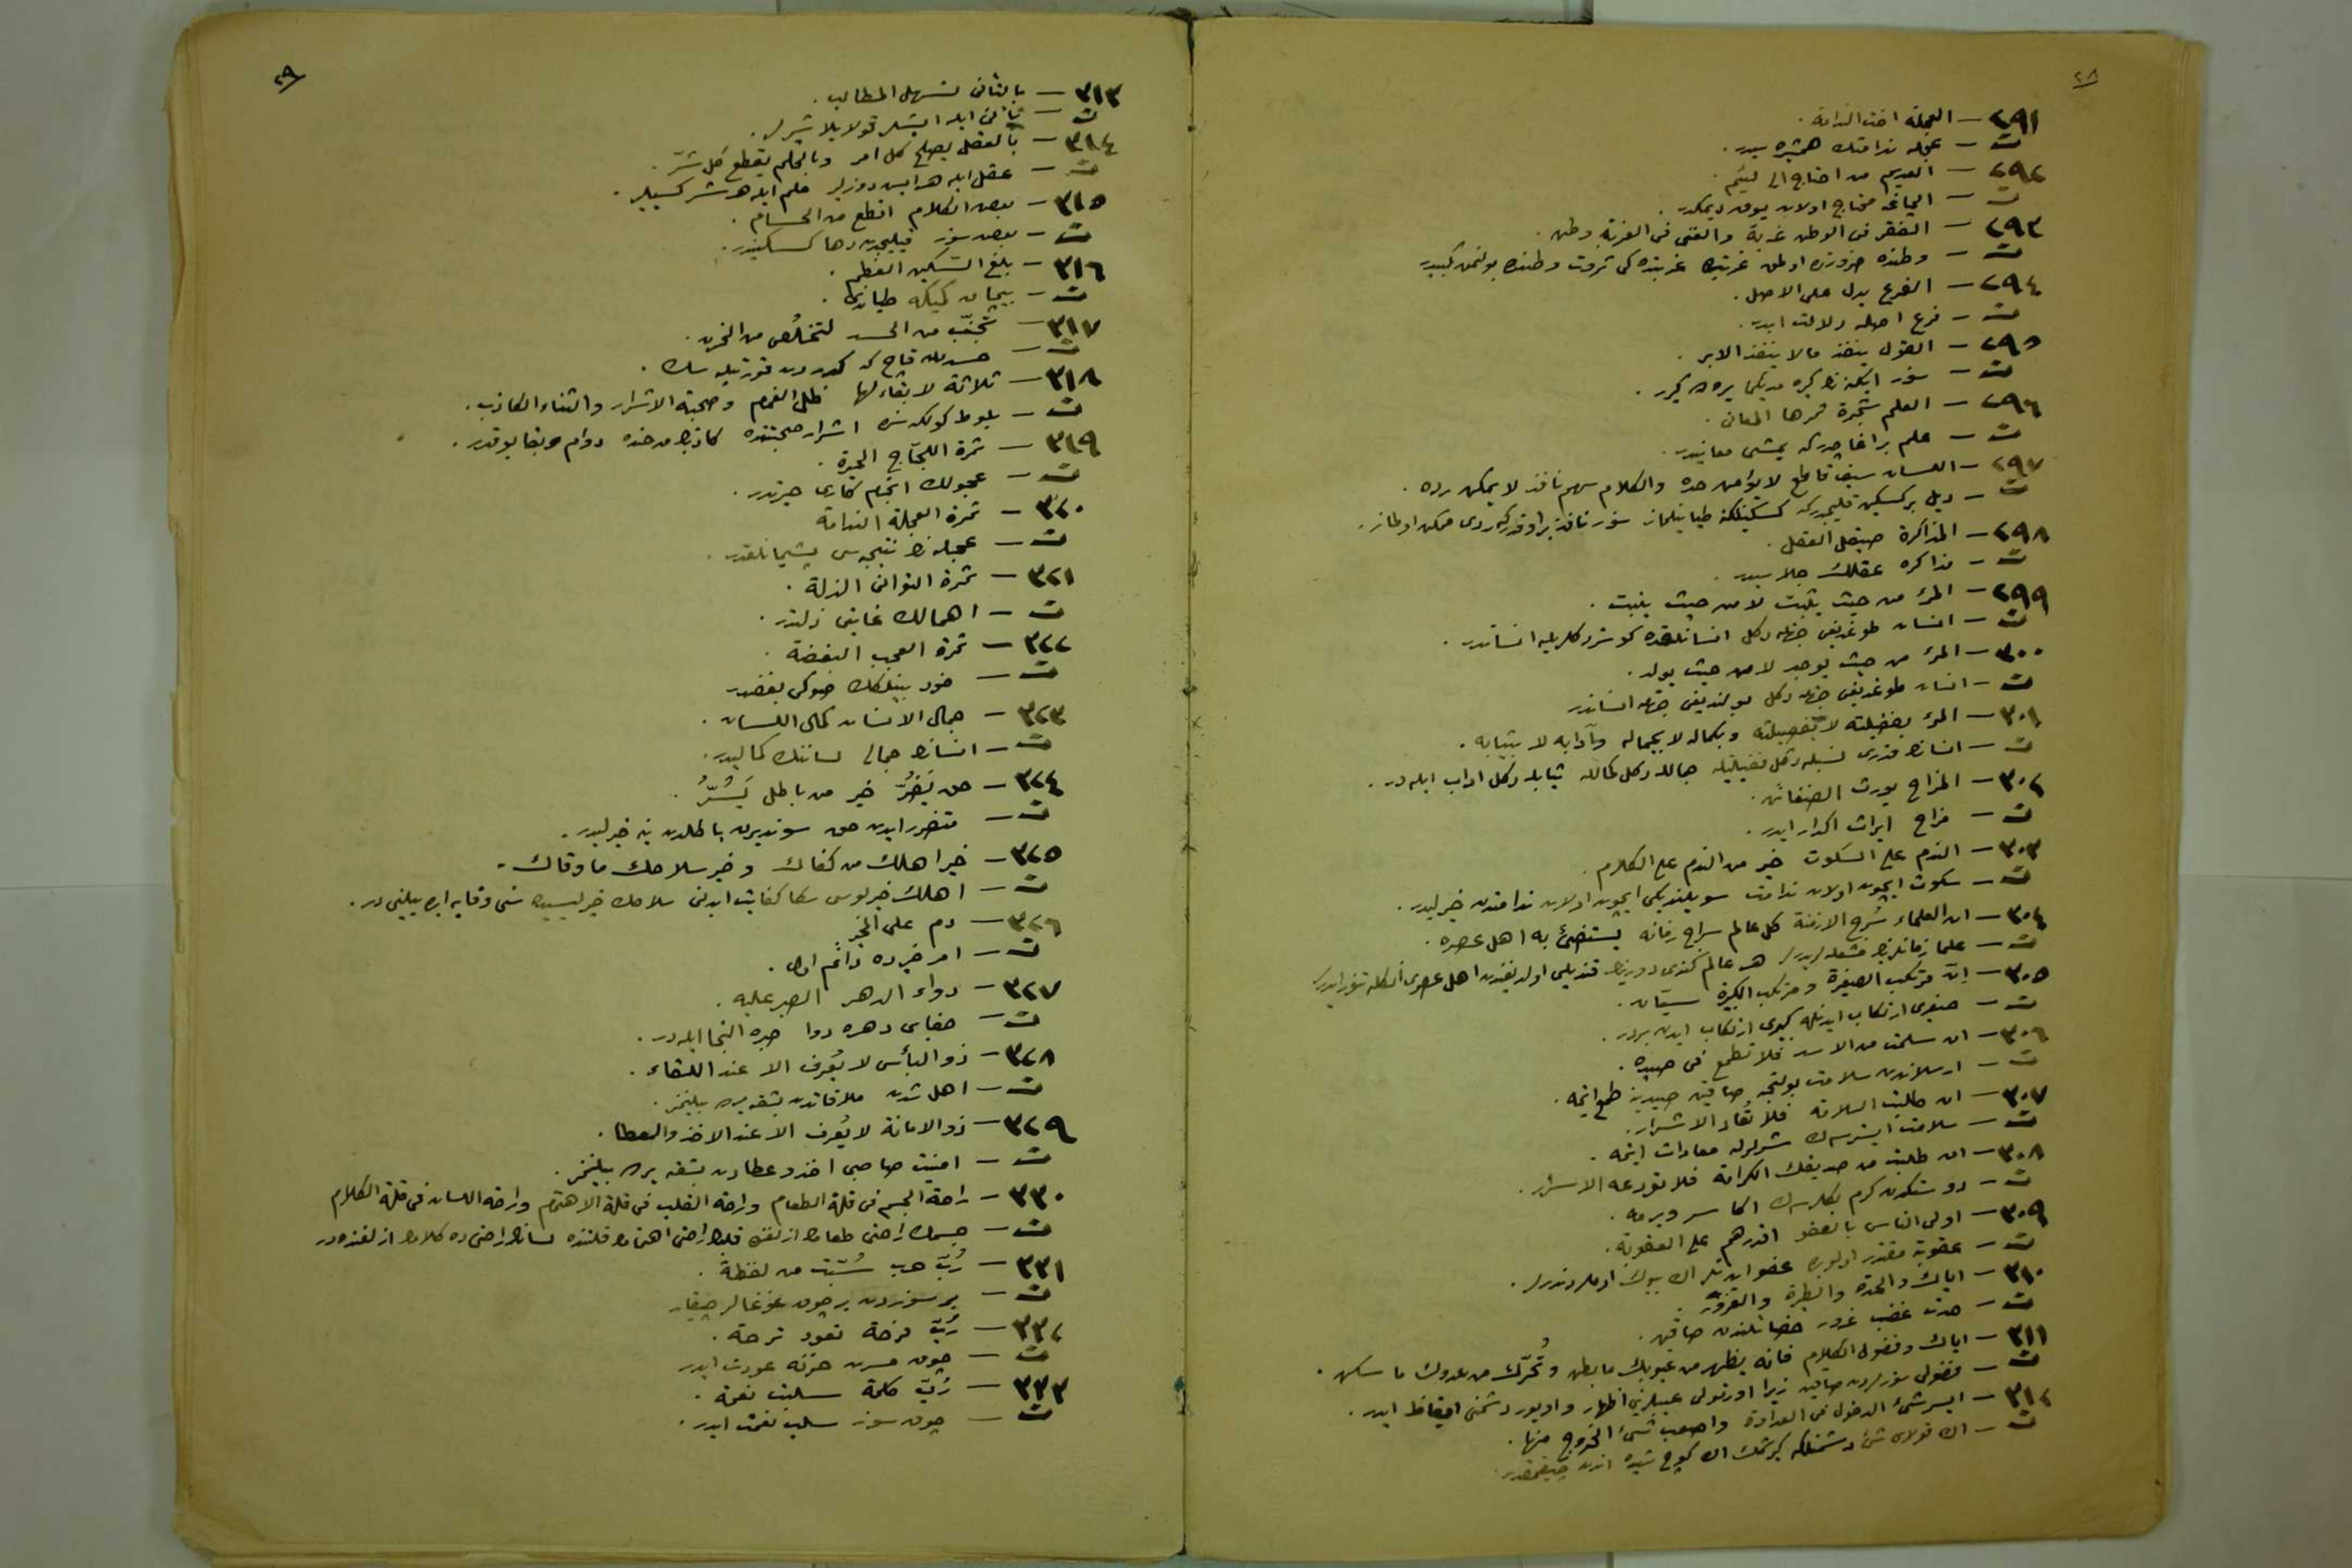 ٢٨
٢٩١ — العجلة اخت الندامة .
ت — عجله ندامتك همشيره سيدر .
٢٩٢ — العديم من احتاج الى لئيم .
ت — الچاغه محتاج اولان يوق ديمكدر .
٢٩٣ — الفقر فى الوطن غربة والغنى فى الغربة وطن .
ت — وطنده ضرورتده اولمق غربتده غربتده كى ثروت وطنده بولنمق كبيدر
٢٩٤ — الفرع يدل على الاصل .
ت — فرع اصله دلالت ايدر .
٢٩٥ — القول ينفذ مالا ينفذ الابر .
ت — سوز ايكنه نك كيره مديكى يره كيرر .
٢٩٦ — العلم شجرة ثمرها المعانى .
ت — علم بر اغاجدركه يمشى معانيدر .
٢٩٧ — اللسان سيف قاطع لا يؤمن حده والكلام سهم نافذ لا يمكن رده .
ت — ديل بر كسكين قليجدركه كسكينلكنه طيانيلماز سوز نافذ بر اوقدركه ردى ممكن اولماز .
٢٩٨ — المذاكرة صيقل العقل .
ت — مذاكره عقلك جلاسيدر .
٢٩٩ — المرء من حيث يثبت لا من حيث ينبت .
ت — انسان طوغديغى جهتله دكل انسانلقده كوستردكلريله انساندر .
٣٠٠ — المرء من حيث يوجد لا من حيث يولد .
ت — انسان طوغديغى جهتله دكل بولنديغى جهتله انساندر
٣٠١ — المرء بفضيلته لا بفصيلته وبكماله لا بجماله وبآدابه لا بثيابه .
ت — انسانك قدرى نسبله دكل فضيلتله جمالله دكل كمالله ثيابله دكل اداب ايله در .
٣٠٢ — المزاح يورث الضغائن .
ت — مزاح ايراث اكدار ايدر .
٣٠٣ — الندم على السكوت خير من الندم على الكلام .
ت — سكوت ايچون اولان ندامت سويلنديكى ايچون اولان ندامتدن خيرليدر .
٣٠٤ — ان العلماء سُرج الازمنة كل عالم سراج زمانه يستضئ به اهل عصره .
ت — علما زمانلرينك مشعله لريدر هر عالم كندى دورينك قنديلى اولديغندن اهل عصرى انكله تنور ايدر
٣٠٥ — انّ مرتكب الصغيرة ومرتكب الكبيرة سيّان .
ت — صغيرى ارتكاب ايدنله كبيرى ارتكاب ايدن بردر .
٣٠٦ — ان سلمت من الاسد فلا تطمع فى صيده .
ت — ارسلاندن سلامت بولنجه صاقين صيدينه طمع ايتمه .
٣٠٧ — ان طلبت السلامة فلا تعاد الاشرار .
ت — سلامت ايسترسه ك شريرلرله معادات ايتمه .
٣٠٨ — ان طلبت من صديقك الكرامة فلا تودعه الاسرار .
ت — دوستكدن كرم بكلرسه ك اكا سر ويرمه .
٣٠٩ — اولى الناس بالعفو اقدرهم على العقوبة .
ت — عقوبته مقتدر اولوب عفو ايدنلر اك بيوك ادملردندر .
٣١٠ — اياك والحدة والبطرة والغرور .
ت — حدت غضب غرور خصائلندن صاقين .
٣١١ — اياك وفضول الكلام فانه يظهر من عيوبك ما بطن وتُحرّك من عدوك ما سكن .
ت — فضولى سوزلردن صاقين زيرا اورتولى عيبلريڭى اظهار و اويور دشمنڭى ايقاظ ايدر .
٣١٢ — ايسر شئ الدخول فى العداوة واصعب شئ الخروج منها .
ت — اك قولاى شئ دشمنلكه كيرشمك اك كوچ شيده اندن چيقمقدر .
٢٩
٣١٣ — بالتأنى تسهل المطالب .
ت — تأنى ايله ايشلر قولايلاشير .
٣١٤ — بالعقل يصلح كل امر وبالحلم يقطع كل شرّ .
ت — عقل ايله هر ايش دوزلير حلم ايله هر شر كسيلير .
٣١٥ — بعض الكلام اقطع من الحسام .
ت — بعض سوز قيليجدن دها كسكيندر .
٣١٦ — بلغ السّكين العظم .
ت — بيچاق كميكه طياندى .
٣١٧ — تجنّب من الحسد لتخلُص من الحزن .
ت — حسددن قاچ كه كدردن قورتيله سك .
٣١٨ — ثلاثة لا بقاء لها ظل الغمام وصحبة الاشرار والثناء الكاذب .
ت — بلوط كولكه سنده اشرار صحبتنده كاذبك مدحنده دوام وبقا يوقدر .
٣١٩ — ثمرة اللجاج الحيرة .
ت — عجولك انجام كارى حيرتدر .
٣٢٠ — ثمرة العجلة الندامة
ت — عجله نك نتيجه سى پشيمانلقدر .
٣٢١ — ثمرة التوانى الذلة .
ت — اهمالك غايتى ذلتدر .
٣٢٢ — ثمرة العجب البغضة .
ت — خود بينلكك صوكى بغضدر
٣٢٣ — جمال الانسان كمال اللسان .
ت — انسانك جمالى لساننك كماليدر .
٣٢٤ — حق يَضُرّ خير من باطل يَسُرُّ .
ت — متضرر ايدن حق سونديرن باطلدن ينه خيرليدر .
٣٢٥ — خير اهلك من كفاك وخير سلاحك ما وقاك .
ت — اهلك خيرلوسى سكا كفايت ايدنى سلاحك خيرليسيده سنى وقايه ايده بيلنى در .
٣٢٦ — دم على الخير
ت — امر خيرده دائم اول .
٣٢٧ — دواء الدهر الصبر عليه .
ت — جفاى دهره دوا صبره التجا ايله در .
٣٢٨ — ذو البأس لا يُعرف الا عند اللقاء .
ت — اهل شدت ملاقاتدن بشقه يرده بيلنمز .
٣٢٩ — ذو الامانة لا يُعرف الا عند الاخذ والعطا .
ت — امنيت صاحبى اخذ و عطادن بشقه يرده بيلنمز .
٣٣٠ — راحة الجسم فى قلة الطعام وراحة القلب فى قلة الاهتمام وراحة اللسان فى قلة الكلام
ت — جسمك راحتى طعامك ازلغنده قلبك راحتى اهتمامك قلتنده لسانك راحتى ده كلامك ازلغنده در
٣٣١ — رُبّ حرب شُبّت من لفظة .
ت — بر سوزدن بر چوق غوغالر چيقار
٣٣٢ — رُبّ فرحة تعود ترحة .
ت — چوق مسرت حزنه عودت ايدر
٣٣٣ — رُبّ كلمة سلبت نعمة .
ت — چوق سوز سلب نعمت ايدر .